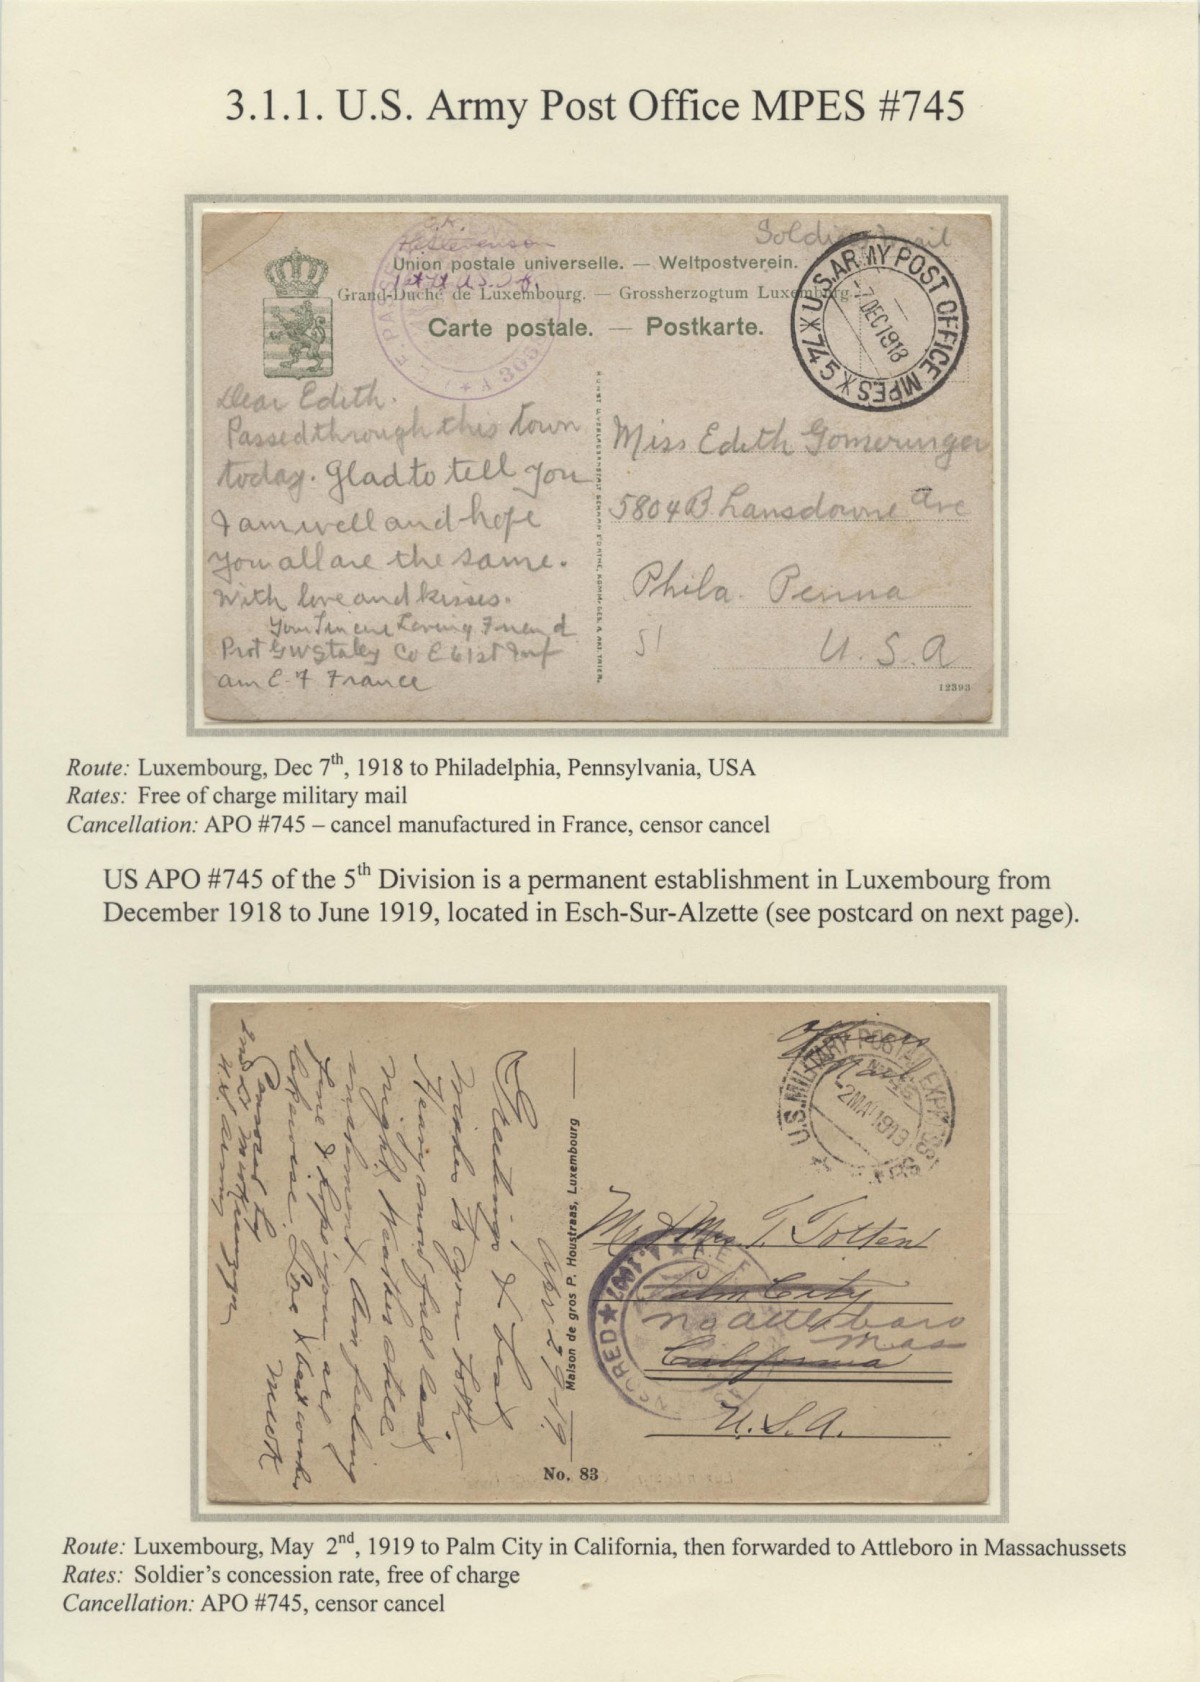 3.1.1. U.S. Army Post Office MPES #745
Soldiers mail
O.K.
Union postale universelle. — Weltpostverein.
Grand-Duché de Luxembourg. — Grossherzogtum Luxemburg.
Carte postale. — Postkarte.
U.S. ARMY POST OFFICE MPES
7 DEC 1918
* 745 *
Dear Edith.
Passed through this town
today. Glad to tell you
I am well and hope
you all are the same.
With love and kisses.
Your Sincere Loving Friend
GW Staley Co E 61st Inf
am E. F France
Miss Edith Gomeringer
5804 B Lansdowne Ave
Phila. Penna
51
U. S. A
12393
Route: Luxembourg, Dec 7th, 1918 to Philadelphia, Pennsylvania, USA
Rates: Free of charge military mail
Cancellation: APO #745 – cancel manufactured in France, censor cancel
US APO #745 of the 5th Division is a permanent establishment in Luxembourg from
December 1918 to June 1919, located in Esch-Sur-Alzette (see postcard on next page).
Officers
Mail
U.S. MILITARY POSTAL EXPRESS
2 MAY 1919
April 29-1919
Greetings & best
wishes to you both.
Heavy snow fall last
night, weather still
inclement. Am feeling
fine & hope you are
likewise. Love & best wishes
Censored by
2nd Lt
U.S. Army
Maison de gros P. Houstraas, Luxembourg
No. 83
Mr & Mrs. T. Totten
Palm City
No Attleboro
Mass
California
U.S.A.
A.E.F.
CENSORED
A.1007
Route: Luxembourg, May 2nd, 1919 to Palm City in California, then forwarded to Attleboro in Massachussets
Rates: Soldier's concession rate, free of charge
Cancellation: APO #745, censor cancel